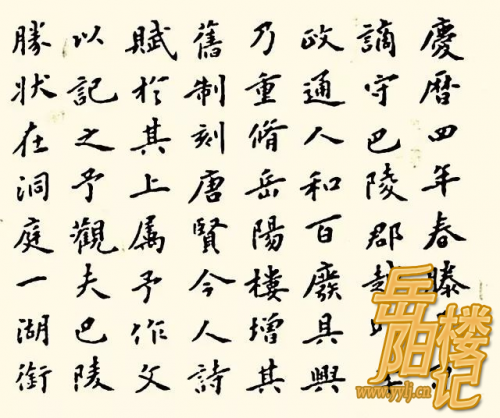 慶曆四年春滕
謫守巴陵郡越
政通人和百廢具興
乃重脩岳陽樓增其
舊制刻唐賢今人詩
賦於其上属予作文
以記之予觀夫巴陵
勝狀在洞庭一湖銜
岳阳楼记
www.yylj.cn